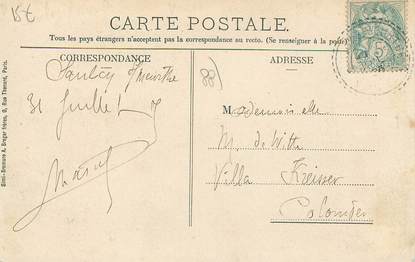 15€
CARTE POSTALE.
Tous les pays étrangers n'acceptent pas la correspondance au recto. (Se renseigner à la poste)
CORRESPONDANCE
ADRESSE
Saulcy s/Meurthe
31 Juillet
88)
Mademoiselle
M. de Witte
Villa Kreisser
5
Simi-Bromure A. Breger frères, 9, Rue Thénard, Paris.